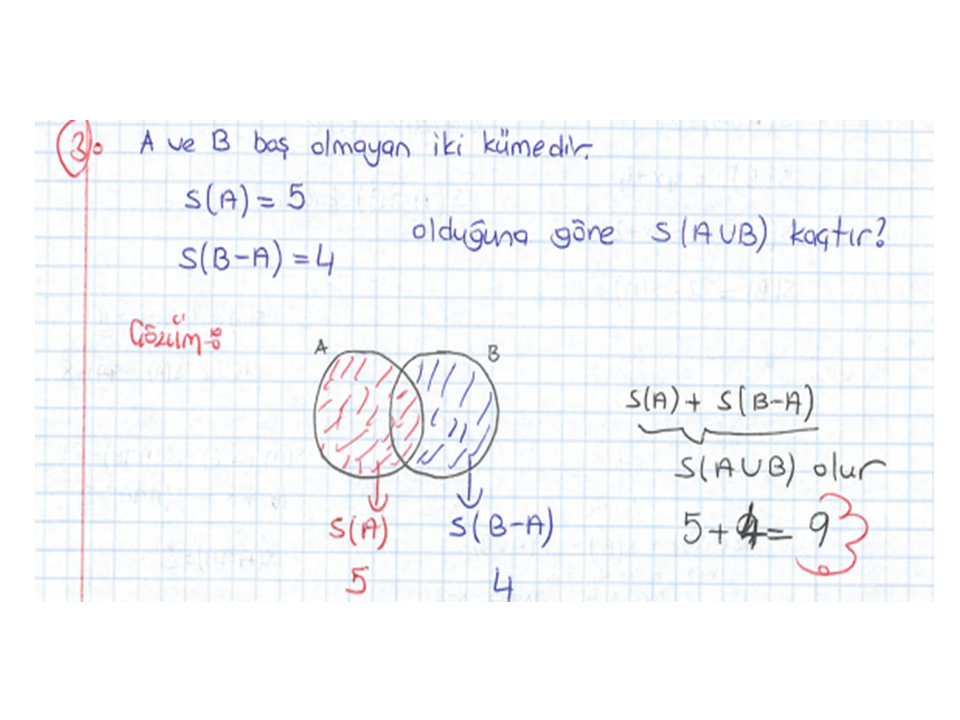 3. A ve B boş olmayan iki kümedir.
S(A) = 5
S(B-A) = 4
olduğuna göre S(AUB) kaçtır?
Çözüm:
A
B
S(A) + S(B-A)
S(AUB) olur
5+4= 9
S(A)
S(B-A)
5
4